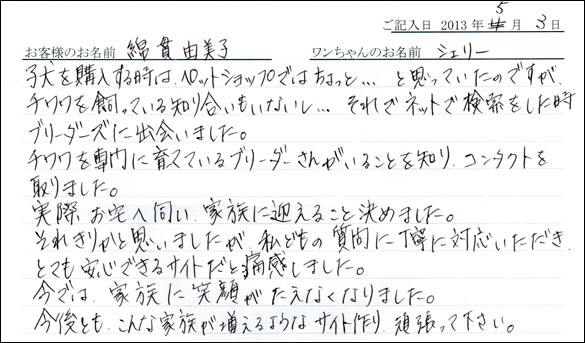 ご記入日 2013年 5月 3日
お客様のお名前 綿貫由美子 ワンちゃんのお名前 シェリー
子犬を購入する時は、ペットショップではちょっと… と思っていたのですが、
チワワを飼っている知り合いもいないし… それでネットで検索をした時
ブリーダーズに出会いました。
チワワを専門に育てているブリーダーさんがいることを知り、コンタクトを
取りました。
実際、お宅へ伺い、家族に迎えること決めました。
それきりかと思いましたが、私どもの質問に丁寧に対応いただき、
とても安心できるサイトだと痛感しました。
今では、家族に笑顔がたえなくなりました。
今後とも、こんな家族が増えるようなサイト作り、頑張って下さい。